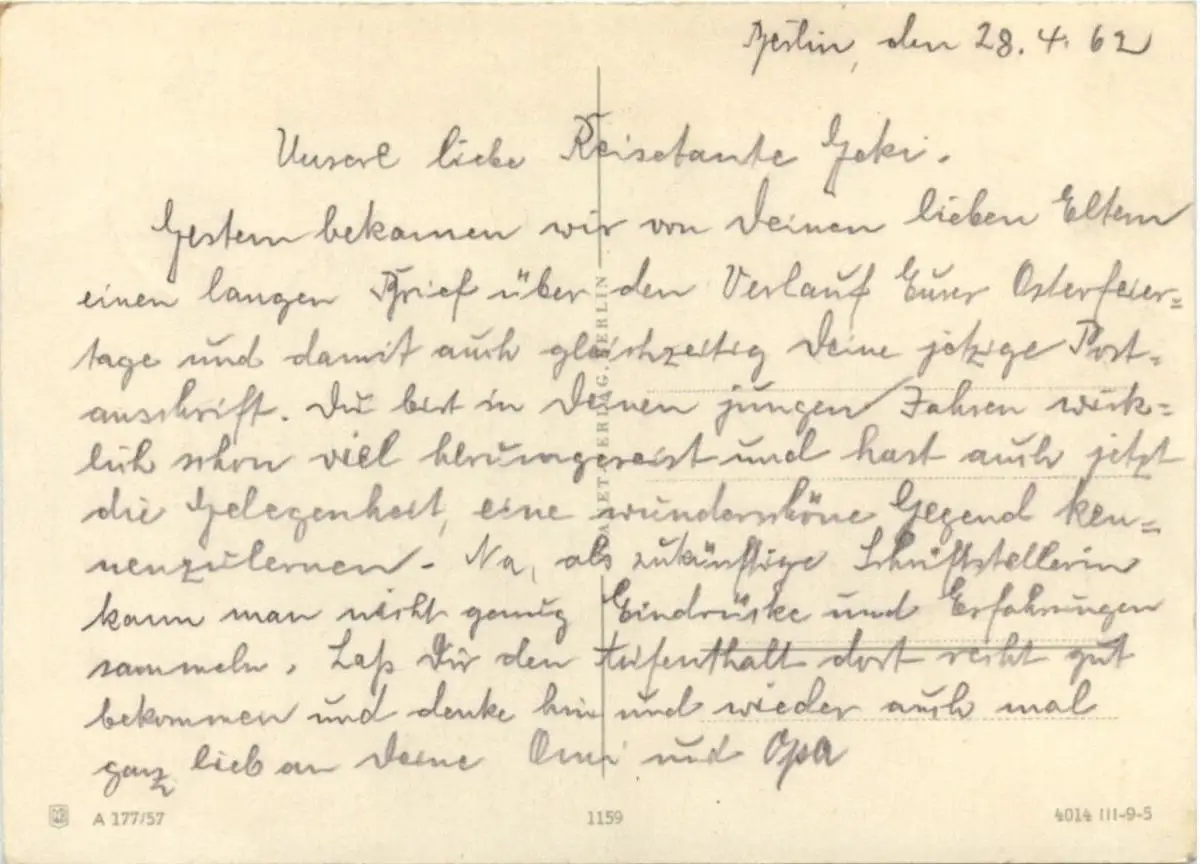 Berlin, den 28. 4. 62
Unsere liebe Reisetante Geki.
Gestern bekamen wir von Deinen lieben Eltern
einen langen Brief über den Verlauf Eurer Osterfeier=
tage und damit auch gleichzeitig Deine jetzige Post=
anschrift. Du bist in Deinen jungen Jahren wirk=
lich schon viel herumgereist und hast auch jetzt
die Gelegenheit, eine wunderschöne Gegend ken=
nenzulernen. Na, als zukünftige Schriftstellerin
kann man nicht genug Eindrücke und Erfahrungen
sammeln. Laß Dir den Aufenthalt dort recht gut
bekommen und denke hin und wieder auch mal
ganz lieb an Deine Omi und Opa
A 177/57
1159
4014 III-9-5